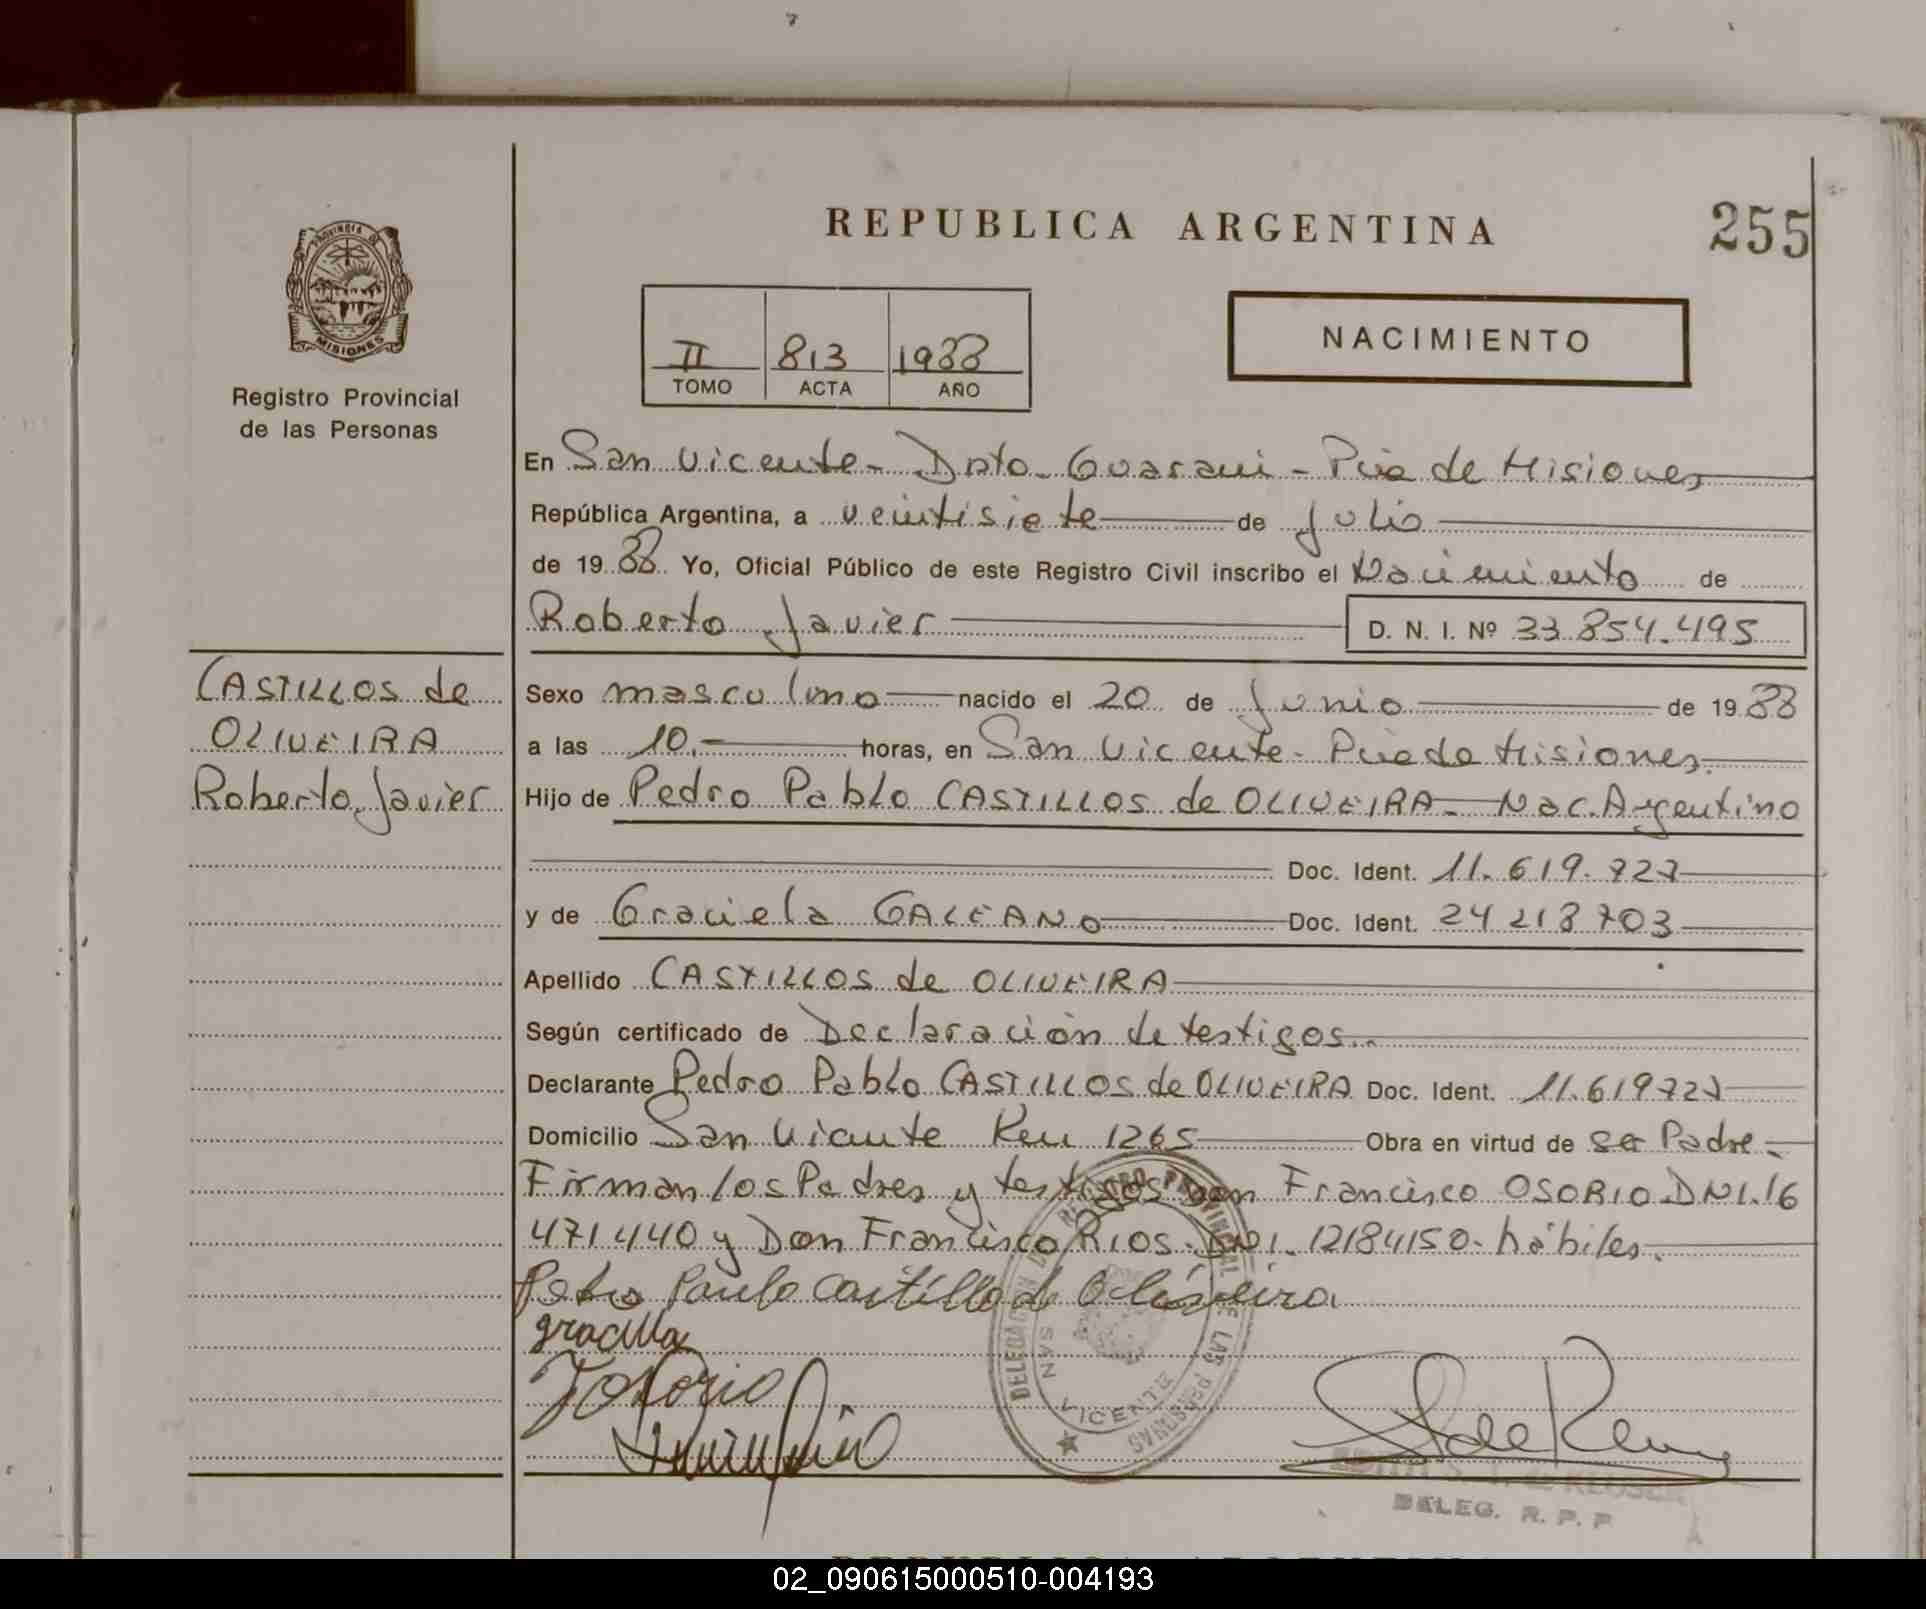 REPUBLICA ARGENTINA
255
PROVINCIA DE
MISIONES
Registro Provincial
de las Personas
II 813 1988
TOMO ACTA AÑO
NACIMIENTO
En San Vicente - Dpto. Guaraní - Pcia de Misiones
República Argentina, a veintisiete de Julio
de 1988 Yo, Oficial Público de este Registro Civil inscribo el Nacimiento de
Roberto Javier D. N. I. Nº 33.854.495
CASTILLOS de
OLIVEIRA
Roberto Javier
Sexo masculino nacido el 20 de Junio de 1988
a las 10.- horas, en San Vicente - Pcia de Misiones.
Hijo de Pedro Pablo CASTILLOS de OLIVEIRA - Nac. Argentino
Doc. Ident. 11.619.727
y de Graciela GALEANO Doc. Ident. 24 218 703
Apellido CASTILLOS de OLIVEIRA
Según certificado de Declaración de testigos..
Declarante Pedro Pablo CASTILLOS de OLIVEIRA Doc. Ident. 11.619727
Domicilio San Vicente Km 1265 Obra en virtud de ser Padre -
Firman los Padres y testigos don Francisco OSORIO DNI. 16
471440 y Don Francisco RIOS - DNI. 12184150 - hábiles.
castillo d
DELEGACION REGISTRO PROVINCIAL DE LAS PERSONAS
SAN VICENTE
DELEG. R. P. P
02_090615000510-004193